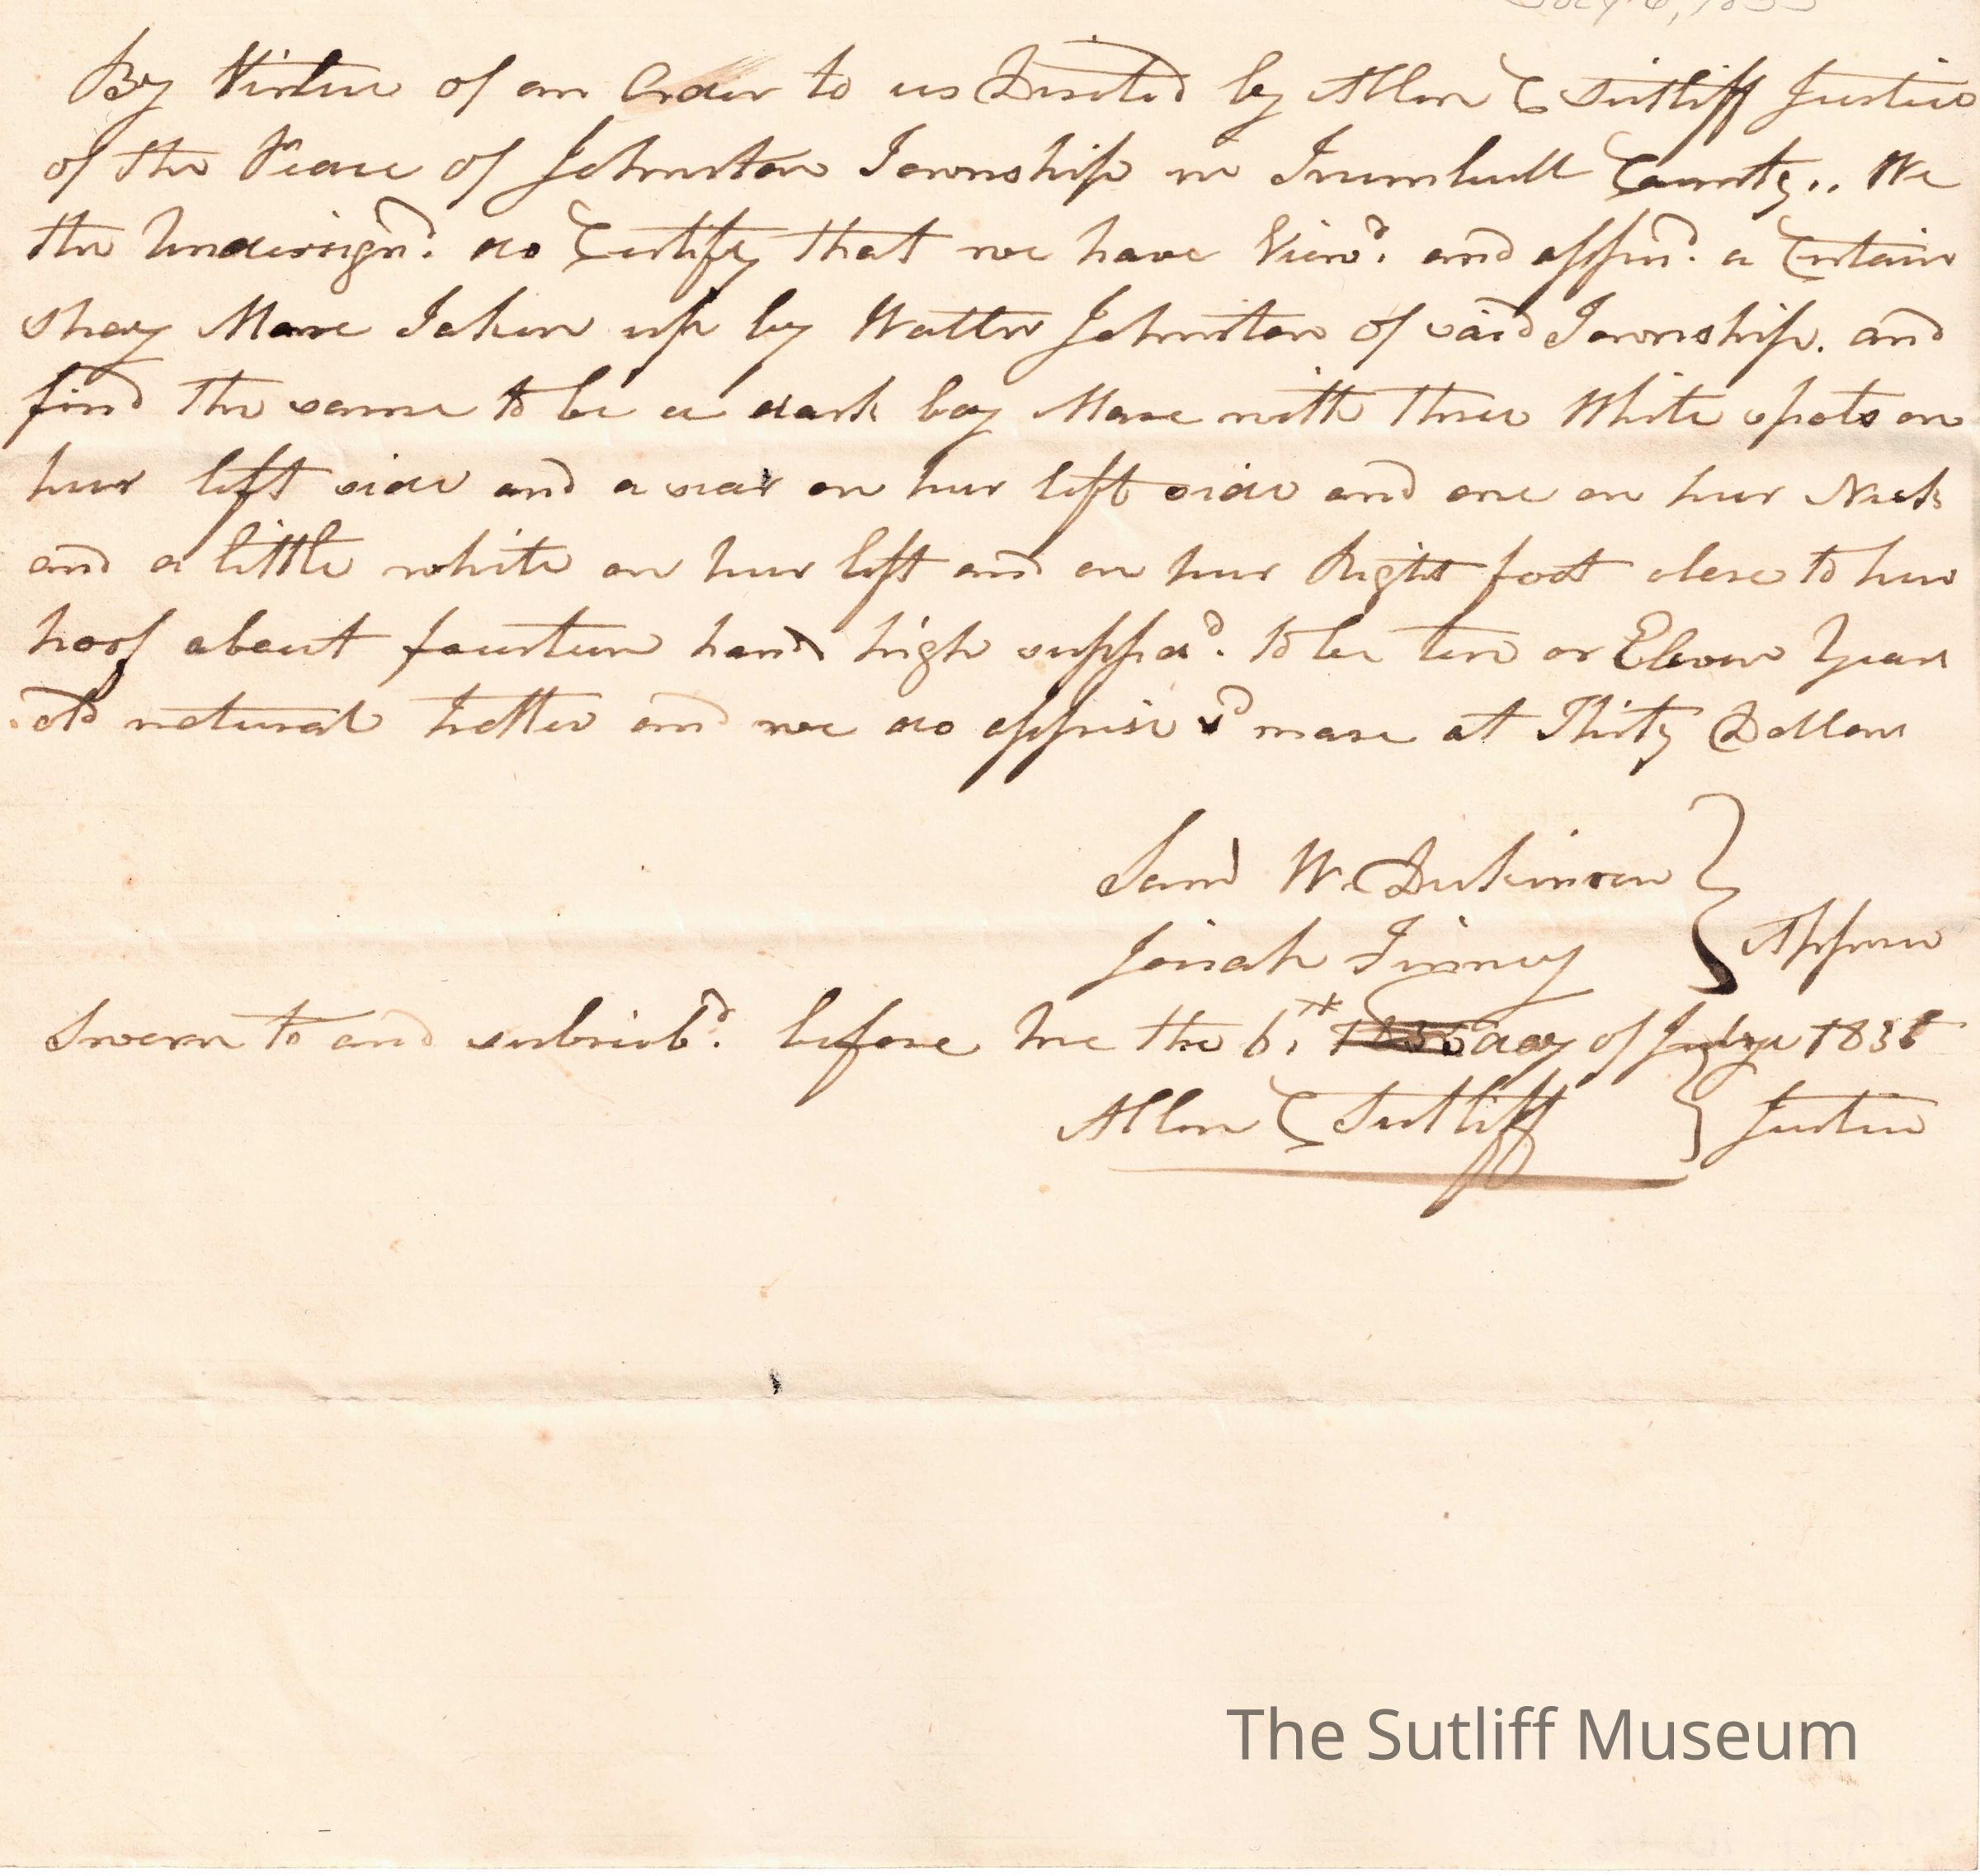 July 6, 1835
By Virtue of an Order to us Directed by Allen C Sutliff Justice
of the Peace of Johnston Township in Trumbull County.. We
the Undersignd. do Certify that we have Viewd. and apprisd. a Certain
stray Mare Taken up by Walter Johnston of said Township. and
find the same to be a dark bay Mare with Three White spots on
hur left side and a scar on hur left side and one on hur Neck
and a little white on hur left and on hur Right foot close to hur
hoof about fourteen hand high suppod. to be ten or Eleven Years
old natural trotter and we do apprise sd mare at Thirty Dollars
Saml W. Dickinson
Josiah Finney
Apprisers
Sworn to and subscribd. before me the 6th day of July 1835
Allen C Sutliff } Justice
The Sutliff Museum